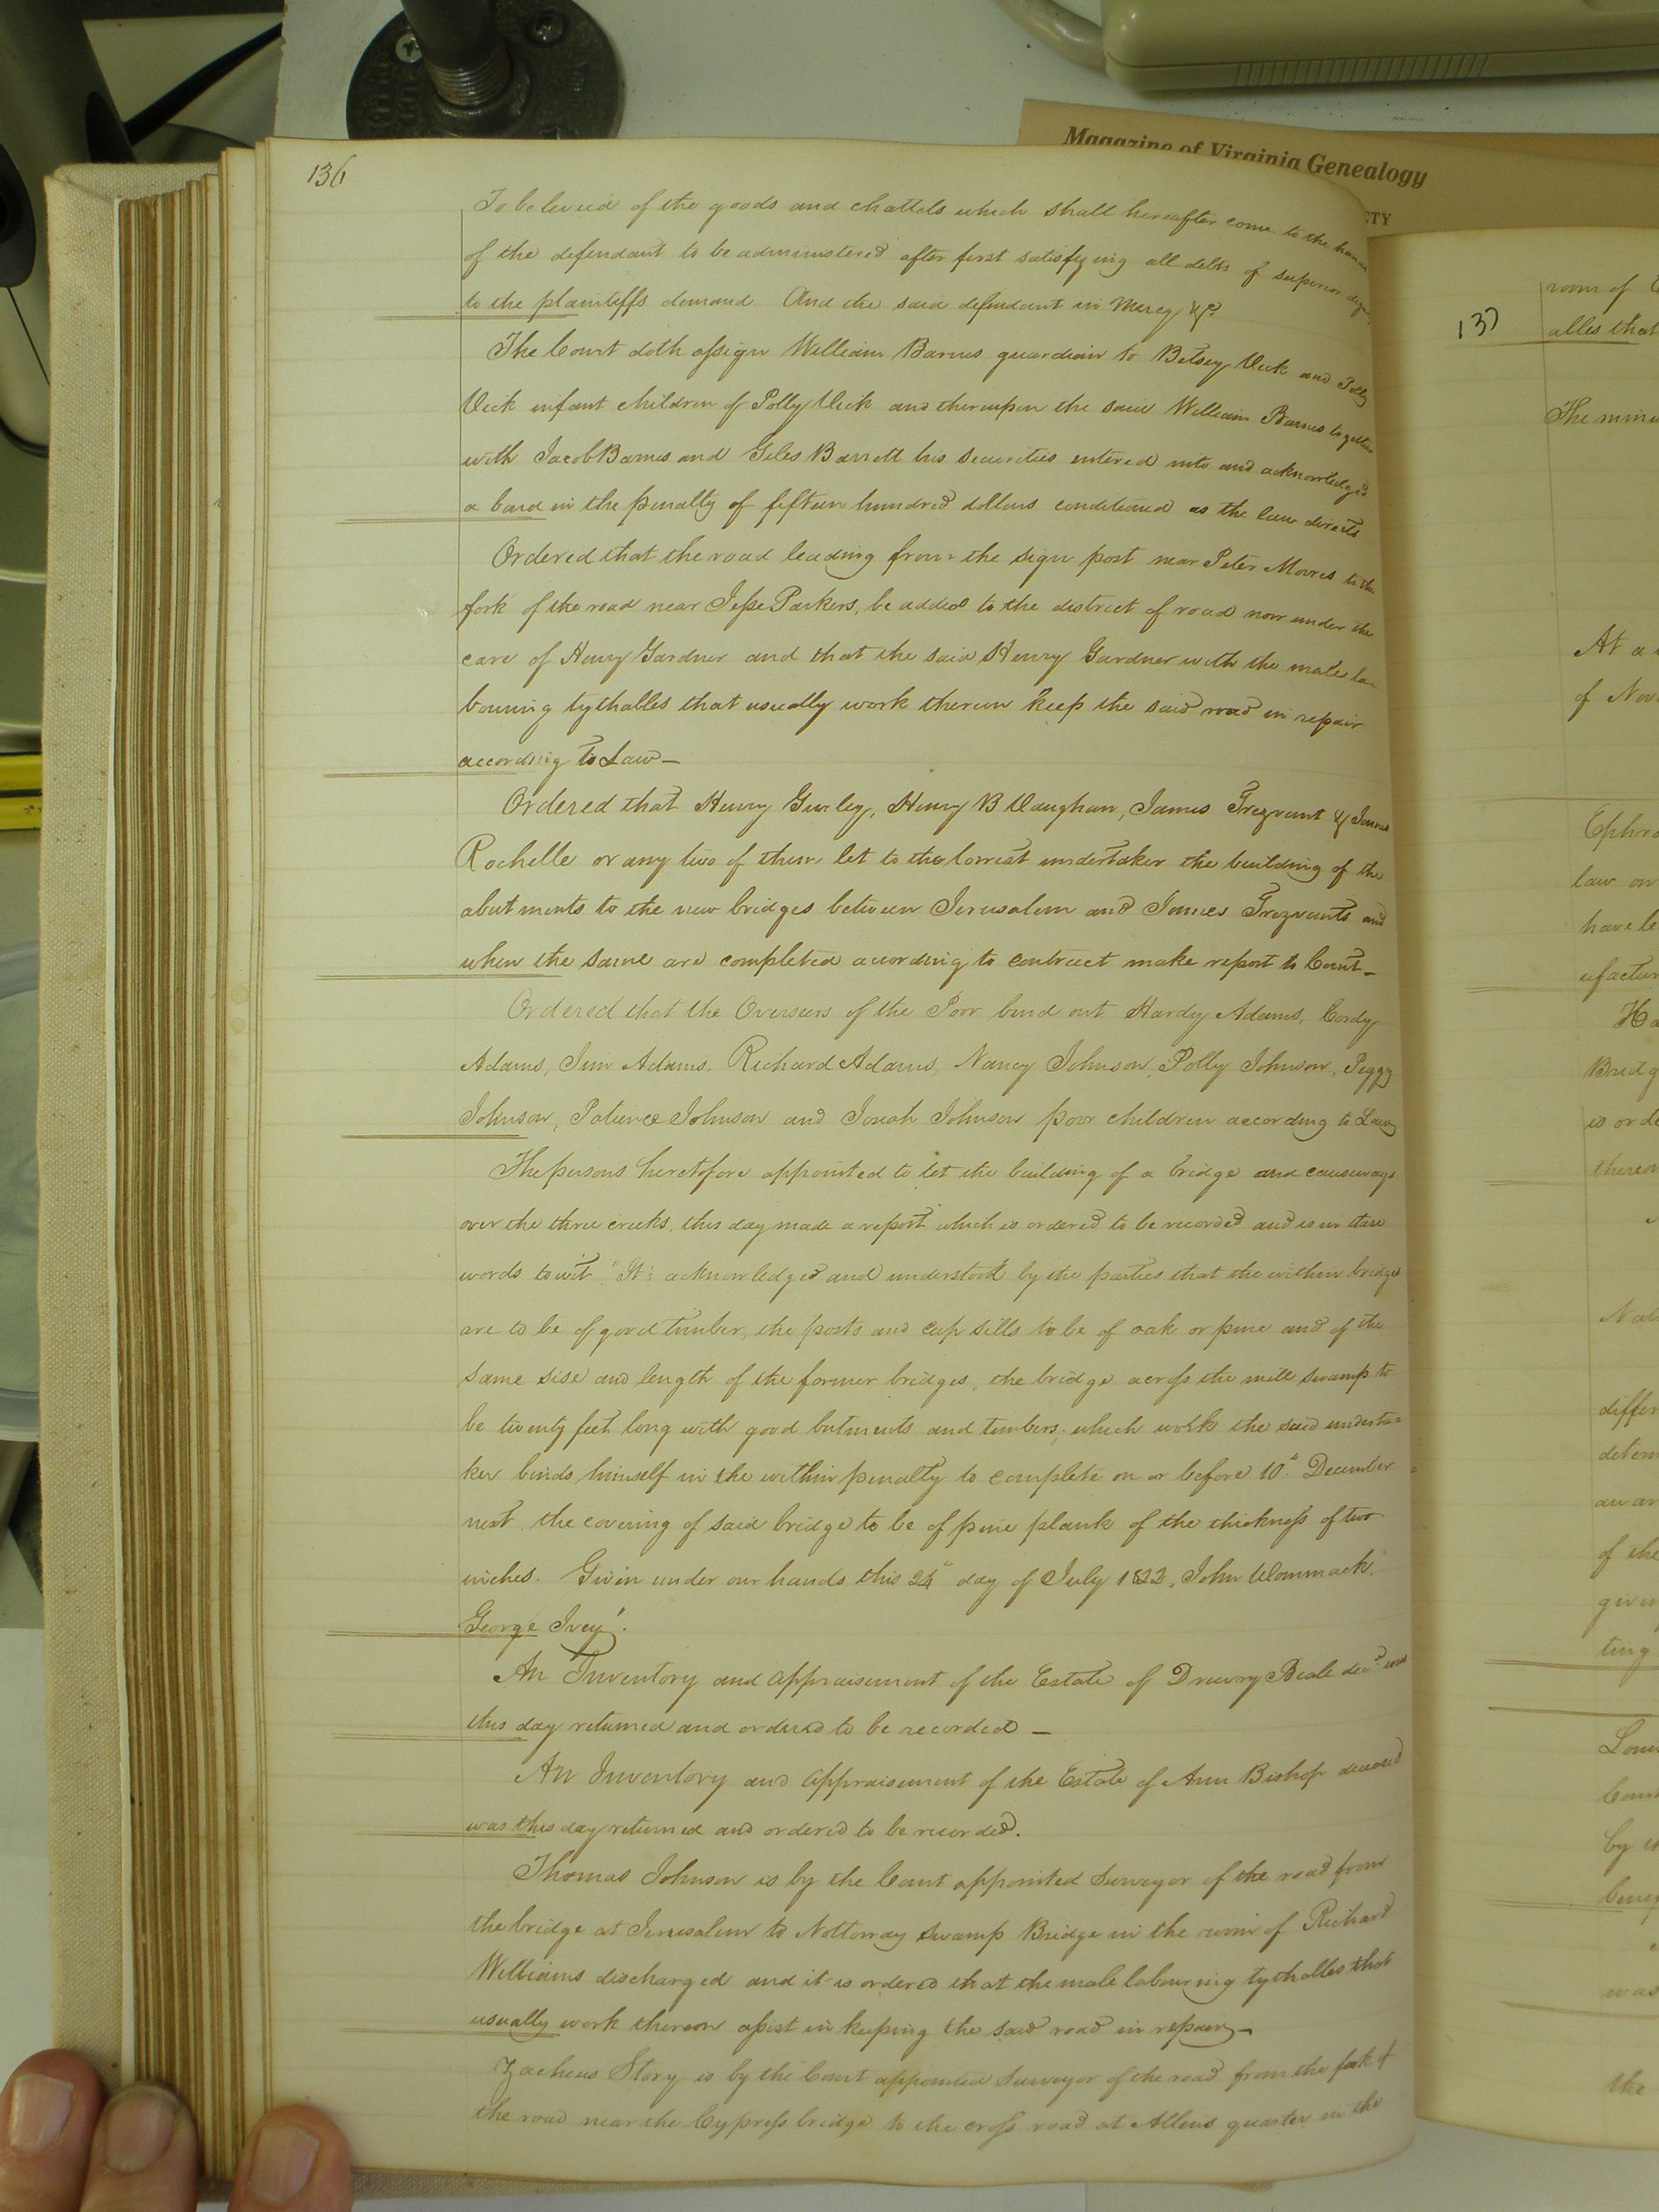 Magazine of Virginia Genealogy
ETY
136
To be levied of the goods and chattels which shall hereafter come to the hands
of the defendant to be administered after first satisfying all debts of superior
to the plaintiffs demand And the said defendant in Mercy &c.
The Court doth assign William Barnes guardian to Betsey Vick and Polly
Vick infant children of Polly Vick and thereupon the said William Barnes together
with Jacob Barnes and Giles Barrett his securities entered into and acknowledged
a bond in the penalty of fifteen hundred dollars conditioned as the law directs
Ordered that the road leading from the sign post near Peter Moores to the
fork of the road near Jesse Parkers, be added to the district of road now under the
care of Henry Gardner and that the said Henry Gardner with the male la-
bouring tythables that usually work thereon keep the said road in repair
according to Law—
Ordered that Henry Gurley, Henry B Vaughan, James Trezvant & James
Rochelle or any two of them let to the lowest undertaker the building of the
abutments to the new bridges between Jerusalem and James Trezvants and
when the same are completed according to contract make report to Court—
Ordered that the Overseers of the Poor bind out Hardy Adams, Cordy
Adams, Jim Adams, Richard Adams, Nancy Johnson, Polly Johnson, Peggy
Johnson, Patience Johnson and Jonah Johnson poor children according to Law
The persons heretofore appointed to let the building of a bridge and causeways
over the three creeks, this day made a report which is ordered to be recorded and is in these
words towit "It is acknowledged and understood by the parties that the within bridges
are to be of good timber, the posts and cap sills to be of oak or pine and of the
same sise and length of the former bridges, the bridge across the mill swamp to
be twenty feet long with good butments and timbers, which work the said underta=
ker binds himself in the within penalty to complete on or before 10th December
next the covering of said bridge to be of pine plank of the thickness of two
inches. Given under our hands this 24th day of July 1822, John Wommack.
George Ivey".
An Inventory and appraisement of the Estate of Drewry Beale decd was
this day returned and ordered to be recorded —
An Inventory and appraisement of the Estate of Ann Bishop deceased
was this day returned and ordered to be recorded.
Thomas Johnson is by the Court appointed Surveyor of the road from
the bridge at Jerusalem to Nottoway Swamp Bridge in the room of Richard
Williams discharged and it is ordered that the male labouring tythables that
usually work thereon assist in keeping the said road in repair—
Zacheus Story is by the Court appointed Surveyor of the road from the fork of
the road near the Cypress bridge to the cross road at Allens quarter in the
137
room of
ables that
The minu
At a
of Nov
Ephra
law on
have le
ufactur
Ha
Bridg
is orde
thereon
differ
determ
an an
of the
given
ting
by
was
the